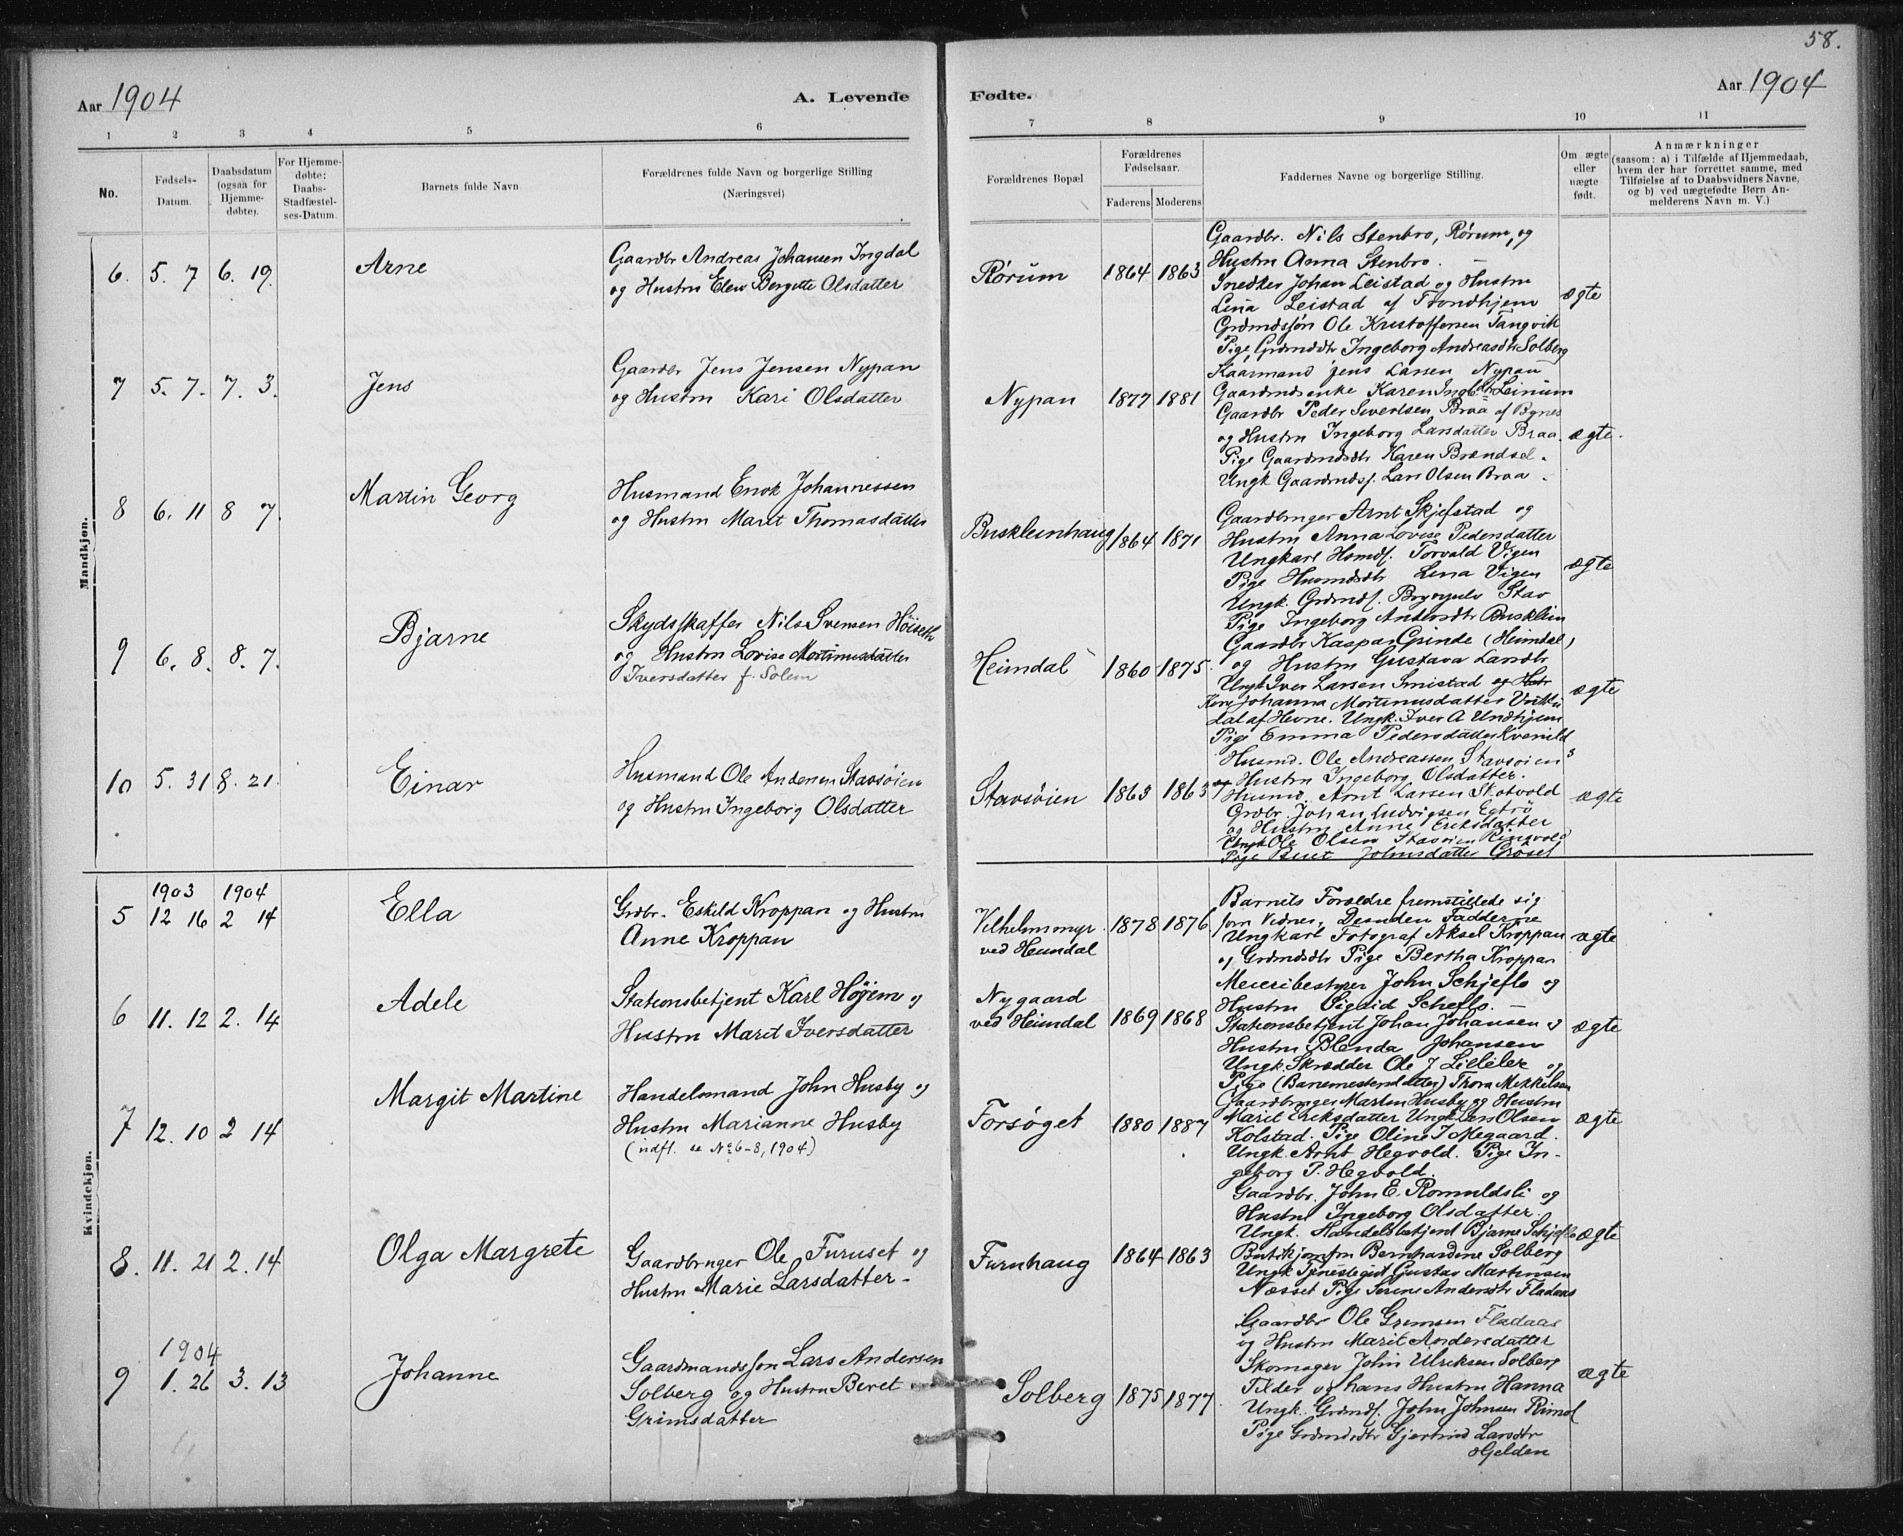 58.
Aar 1904
A. Levende
Fødte.
Aar 1904
1 2 3 4 5 6 7 8 9 10 11
No.
Fødsels-
Datum.
Daabsdatum
(ogsaa for
Hjemme-
døbte).
For Hjemme-
døbte:
Daabs-
Stadfæstel-
ses-Datum.
Barnets fulde Navn
Forældrenes fulde Navn og borgerlige Stilling
(Næringsvei)
Forældrenes Bopæl
Forældrenes
Fødselsaar.
Faderens Moderens
Faddernes Navne og borgerlige Stilling.
Om ægte
eller
uægte
født.
Anmærkninger
(saasom: a) i Tilfælde af Hjemmedaab,
hvem der har forrettet samme, med
Tilføielse af to Daabsvidners Navne,
og b) ved uægtefødte Børn An-
melderens Navn m. V.)
Mandkjøn.
6. 5. 7 6. 19. Arne
Gaardbr Andreas Johansen Ingdal
og Hustru Elen Bergitte Olsdatter
Rørum 1864 1863
Gaardbr. Nils Stenbro, Rørum, og
Hustru Anna Stenbro.
Snedker Johan Leistad og Hustru
Lina Leistad af Trondhjem
Grdmdssøn Ole Kristoffersen Tangvik
Pige, Grdmdsdtr Ingeborg Andreasdtr Solberg
ægte
7 5. 7. 7. 3. Jens
Gaardbr Jens Jensen Nypan
og Hustru Kari Olsdatter
Nypan 1877 1881
Kaarmand Jens Larsen Nypan
Gaardmdsenke Karen Ingebdtr Leinum
Gaardbr Peder Sivertsen Braa af Bynes
og Hustru Ingeborg Larsdatter Braa.
Pige Gaardmdsdtr Karen Brændsel.
Ungk. Gaardmdss. Lars Olsen Braa.
ægte.
8 6. 11 8 7. Martin Georg
Husmand Enok Johannessen
og Hustru Marit Thomasdatter
Buskleinhaug 1864 1871
Gaardbruger Arnt Skjefstad og
Hustru Anna Lovise Pedersdatter
Ungkarl Hsmds. Torvald Vigen
Pige Husmdsdtr Lena Vigen
Ungk. Grdmds. Brynjulv Stav
Pige Ingeborg Andersdtr Busklein
ægte
9 6. 8. 8. 7. Bjarne
Skydsskaffer Nils Svensen Høiseth
og Hustru Lovise Mortinusdatter
Iversdatter f. Solem
Heimdal 1860 1875.
Gaardbr Kaspar Grinde (Heimdal)
og Hustru Gustava Larsdtr
Ungk Iver Larsen Smistad og Hstr
Kone Johanna Mortinusdatter
dal af Hevne. Ungk. Iver A Undhjem
Pige Emma Pedersdatter Kvenild
ægte
10 5. 31 8. 21. Einar
Husmand Ole Andersen Stavsøien
og Hustru Ingeborg Olsdatter
Stavsøien 1863 1863
Husmd. Ole Andreassen Stavsøien
og Hustru Ingeborg Olsdatter.
Husmd. Arnt Larsen Skotvold
Grdbr. Johan Ludvigsen Egtrø
og Hustru Anne Eriksdatter
Ungk Ole Olsen Stavsøien Ringvold
Pige Beret Johnsdatter Grøset
ægte
Kvindekjøn.
1903 1904
5 12 16 2 14 Ella
Grdbr. Eskild Kroppan og Hustru
Anne Kroppan
Vilhelmsmyr
ved Heimdal 1878 1876
Barnets Forældre fremstillede sig
som Vidner, Desuden Fadderne
Ungkarl Fotograf Aksel Kroppan
og Grdmdsdtr Pige Bertha Kroppan
ægte
6 11. 12 2. 14 Adele
Stationsbetjent Karl Høyem og
Hustru Marit Iversdatter
Nygaard
ved Heimdal 1869 1868
Meieribestyrer John Schjeflo og
Hustru Sigrid Scheflo.
Stationsbetjent Johan Johansen og
Hustru Blenda Johansen
Ungk. Skrædder Ole J Lilleler og
Pige (Banemesterdatter) Thora Mikkelsen
ægte
7 12. 10 2 14 Margit Martine
Handelsmand John Husby og
Hustru Marianne Husby
(indfl. se No 6-8, 1904)
Forsøget 1880 1887
Gaardbruger Marten Husby og Hustru
Marit Eriksdatter Ungk Lars Olsen
Kolstad. Pige Oline J Megaard.
Ungk. Arnt Hegvold. Pige In-
geborg P. Hegvold.
ægte
8. 11. 21 2. 14 Olga Margrete
Gaardbruger Ole Furuset og
Hustru Marie Larsdatter-
Furuhaug 1864 1863
Gaardbr. John E. Romuldsli og
Hustru Ingeborg Olsdatter.
Ungk. Handelsbetjent Bjarne Schjeflo
Butikjomfru Bernhardine Solberg
Ungk Tjenestegut Gustav Martinsen
Næsset Pige Serene Andersdtr Fladaas
ægte
1904
9 1. 26 3. 13 Johanne
Gaardmandssøn Lars Andersen
Solberg og Hustru Beret
Grimsdatter
Solberg 1875 1877.
Gaardbr Ole Grimsen Fladaas
og Hustru Marit Andersdatter
Skomager John Ulriksen Solberg
Tilder og hans Hustru Hanna
Ungk. Grdmds. John Johnsen Rimol
Pige Grdmdsdtr Gjertrud Larsdtr
Gjelden
ægte